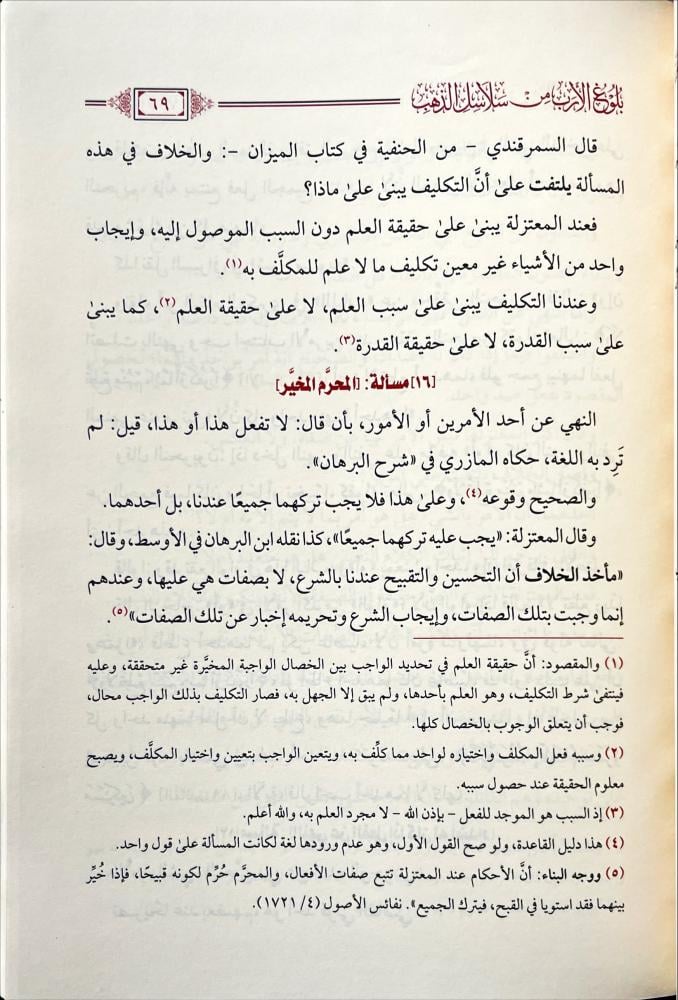 بلوغ الأرب من سلاسل الذهب
٦٩
قال السمرقندي - من الحنفية في كتاب الميزان -: والخلاف في هذه
المسألة يلتفت علىٰ أنَّ التكليف يبنىٰ علىٰ ماذا؟
فعند المعتزلة يبنىٰ علىٰ حقيقة العلم دون السبب الموصول إليه، وإيجاب
واحد من الأشياء غير معين تكليف ما لا علم للمكلَّف به(١).
وعندنا التكليف يبنىٰ علىٰ سبب العلم، لا علىٰ حقيقة العلم(٢)، كما يبنىٰ
علىٰ سبب القدرة، لا علىٰ حقيقة القدرة(٣).
[١٦] مسألة: [المحرَّم المخيَّر]
النهي عن أحد الأمرين أو الأمور، بأن قال: لا تفعل هذا أو هذا، قيل: لم
تَرِد به اللغة، حكاه المازري في «شرح البرهان».
والصحيح وقوعه(٤)، وعلىٰ هذا فلا يجب تركهما جميعًا عندنا، بل أحدهما.
وقال المعتزلة: «يجب عليه تركهما جميعًا»، كذا نقله ابن البرهان في الأوسط، وقال:
«مأخذ الخلاف أن التحسين والتقبيح عندنا بالشرع، لا بصفات هي عليها، وعندهم
إنما وجبت بتلك الصفات، وإيجاب الشرع وتحريمه إخبار عن تلك الصفات»(٥).
(١) والمقصود: أنَّ حقيقة العلم في تحديد الواجب بين الخصال الواجبة المخيَّرة غير متحققة، وعليه
فينتفىٰ شرط التكليف، وهو العلم بأحدها، ولم يبق إلا الجهل به، فصار التكليف بذلك الواجب محال،
فوجب أن يتعلق الوجوب بالخصال كلها.
(٢) وسببه فعل المكلف واختياره لواحد مما كلِّف به، ويتعين الواجب بتعيين واختيار المكلَّف، ويصبح
معلوم الحقيقة عند حصول سببه.
(٣) إذ السبب هو الموجد للفعل - بإذن الله - لا مجرد العلم به، والله أعلم.
(٤) هذا دليل القاعدة، ولو صح القول الأول، وهو عدم ورودها لغة لكانت المسألة علىٰ قول واحد.
(٥) ووجه البناء: أنَّ الأحكام عند المعتزلة تتبع صفات الأفعال، والمحرَّم حُرِّم لكونه قبيحًا، فإذا خُيِّر
بينهما فقد استويا في القبح، فيترك الجميع». نفائس الأصول (٤/ ١٧٢١).